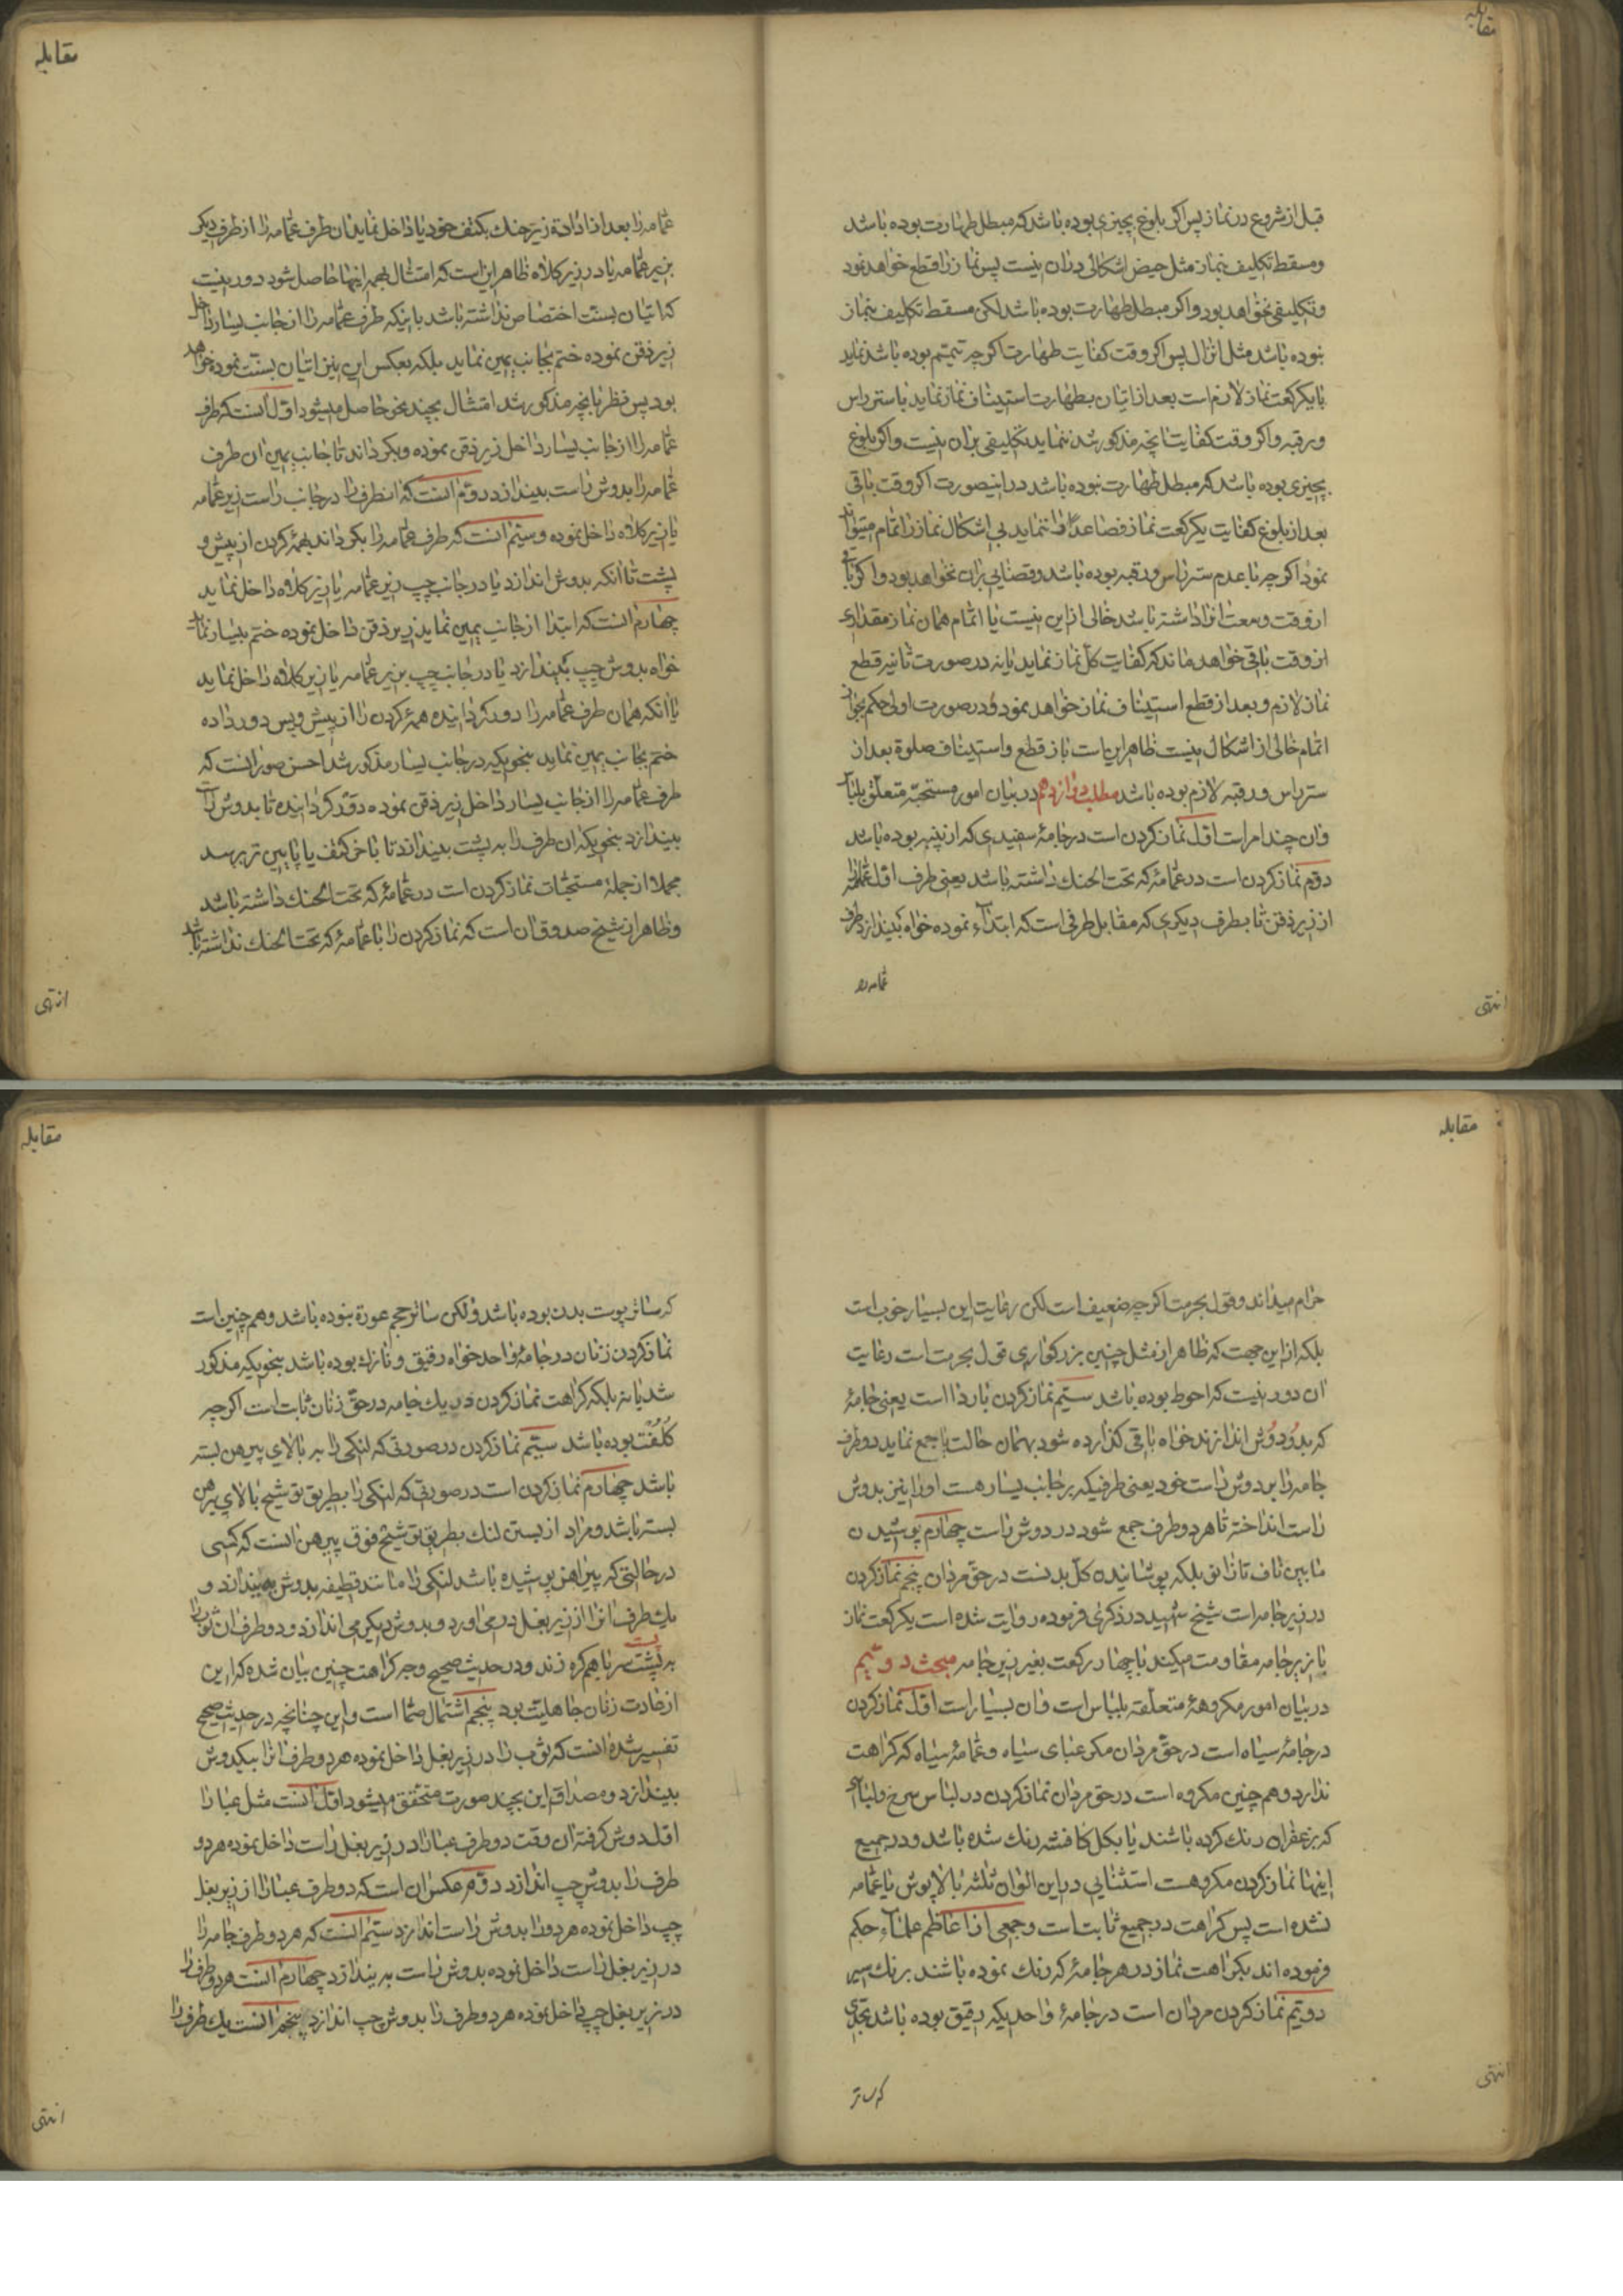 مقابله
قبل از شروع در نماز پس اکر بلوغ بچیزی بوده باشد که مبطل طهارت بوده باشد
ومسقط تکلیف بنماز مثل حیض اشکالی در ان نیست پس نماز را قطع خواهد نمود
وتکلیفی نخواهد بود واکر مبطل طهارت بوده باشد لکن مسقط تکلیف بنماز
نبوده باشد مثل انزال پس اکر وقت کفایت طهارت اکر چه تیمم بوده باشد نماید
با یکرکعت نماز لازم است بعد از اتیان بطهارت استیناف نماز نماید با ستر راس
ورقبه واکر وقت کفایت انچه مذکور شد ننماید تکلیفی بران نیست واکر بلوغ
بچیزی بوده باشد که مبطل طهارت نبوده باشد در اینصورت اکر وقت باقی
بعد از بلوغ کفایت یکرکعت نماز فصاعدًا ننماید بی اشکال نماز را تمام میتواند
نمود اکر چه با عدم ستر راس ورقبه بوده باشد وقضایی بران نخواهد بود واکر باقی
از وقت وسعت انرا داشته باشد خالی از این نیست یا اتمام همان نماز مقداری
از وقت باقی خواهد ماند که کفایت کل نماز نماید یا نه در صورت ثانیه قطع
نماز لازم وبعد از قطع استیناف نماز خواهد نمود ودر صورت اولی حکم بجواز
اتمام خالی از اشکال نیست ظاهر این است باز قطع واستیناف صلوة بعد از
ستر راس ورقبه لازم بوده باشد مطلب دوازدهم در بیان امور مستحبّه متعلّق بلباس
وان چند امر است اوّل نماز کردن است در جامهٔ سفیدی که از پنبه بوده باشد
دوّم نماز کردن است در عمّامهٔ که تحت الحنك داشته باشد یعنی طرف اوّل عمّامه را
از زیر ذقن تا بطرف دیکری که مقابل طرفی است که ابتداء نموده خواه بیندازد طرف
عمّامه را
انتهی
مقابله
عمّامه را بعد از اداده زیر حنك بکتف خود یا داخل نماید ان طرف عمّامه را از طرف دیکر
بزیر عمّامه یا در زیر کلاه ظاهر این است که امتثال بهمه اینها حاصل شود دور نیست
که اتیان بسنّت اختصاص نداشته باشد باینکه طرف عمّامه را از جانب یسار داخل
زیر ذقن نموده ختم بجانب یمین نماید بلکه بعکس این نیز اتیان بسنّت نموده خواهد
بود پس نظر بانچه مذکور شد امتثال بچند نحو حاصل میشود اوّل انست که طرف
عمّامه را از جانب یسار داخل زیر ذقن نموده وبکرداند تا جانب یمین ان طرف
عمّامه را بدوش راست بیندازد دوّم انست که انطرف را در جانب راست زیر عمّامه
یا زیر کلاه داخل نموده وسیّم انست که طرف عمّامه را بکرداند بهمهٔ کردن از پیش و
پشت تا انکه بدوش اندازد یا در جانب چپ زیر عمّامه یا زیر کلاه داخل نماید
چهارم انست که ابتدا از جانب یمین نماید زیر ذقن داخل نموده ختم بیسار نماید
خواه بدوش چپ بیندازد یا در جانب چپ بزیر عمّامه یا زیر کلاه داخل نماید
یا انکه همان طرف عمّامه را دور کردانیده همهٔ کردن را از پیش وپس دور داده
ختم بجانب یمین نماید بنحویکه در جانب یسار مذکور شد احسن صور انست که
طرف عمّامه را از جانب یسار داخل زیر ذقن نموده دوْر کردانیده تا بدوش راست
بیندازد بنحویکه ان طرف را به پشت بیندازد تا باخر کتف یا پایین تر برسد
مجملا از جملهٔ مستحبّات نماز کردن است در عمّامهٔ که تحت الحنك داشته باشد
وظاهر از شیخ صدوق ان است که نماز کردن را با عمّامهٔ که تحت الحنك نداشته باشد
انتهی
مقابله
حرام میداند وقول بحرمت اکر چه ضعیف است لکن رعایت این بسیار خوب است
بلکه از این جهت که ظاهر از مثل چنین بزرکواری قول بحرمت است رعایت
ان دور نیست که احوط بوده باشد سیّم نماز کردن با ردا است یعنی جامهٔ
که بدوُدوُش اندازند خواه باقی کذارده شود بهمان حالت یا جمع نماید دو طرف
جامه را بر دوش راست خود یعنی طرفیکه بر جانب یسار هست او را نیز بدوش
راست انداخته تا هر دو طرف جمع شود در دوش راست چهارم پوشیدن
ما بین ناف تا زانو بلکه پوشانیدن کل بدنست در حقّ مردان پنجم نماز کردن
در زیر جامه است شیخ شهید در ذکری فرموده روایت شده است یکرکعت نماز
با زیر جامه مقاومت میکند با چهار رکعت بغیر زیر جامه مبحث دویّم
در بیان امور مکروههٔ متعلّقه بلباس است وان بسیار است اوّل نماز کردن
در جامهٔ سیاه است در حقّ مردان مکر عبای سیاه وعمّامهٔ سیاه که کراهت
ندارد وهم چنین مکروه است در حق مردان نماز کردن در لباس سرخ ولباسی
که بزعفران رنك کرده باشند یا بکل کافشه رنك شده باشد ودر جمیع
اینها نماز کردن مکروهست استثنایی در این الوان ثلثه بالاپوش یا عمّامه
نشده است پس کراهت در جمیع ثابت است وجمعی از اعاظم علماء حکم
فرموده اند بکراهت نماز در هر جامهٔ که رنك نموده باشند برنك سیر
دویّم نماز کردن مردان است در جامهٔ واحدیکه رقیق بوده باشد بحدّی
که ساتر
انتهی
مقابله
که ساتر پوست بدن بوده باشد ولکن ساتر حجم عورة نبوده باشد وهم چنین است
نماز کردن زنان در جامهٔ واحد خواه رقیق ونازك بوده باشد بنحویکه مذکور
شد یا نه بلکه کراهت نماز کردن در یك جامه در حقّ زنان ثابت است اکر چه
کُلُفت بوده باشد سیّم نماز کردن در صورتی که لنکی را بر بالای پیرهن بسته
باشد چهارم نماز کردن است در صورتی که لنکی را بطریق توشیح بالای پیرهن
بسته باشد ومراد از بستن لنك بطریق توشیح فوق پیرهن انست که کسی
در حالتی که پیراهن پوشیده باشد لنکی را مانند قطیفه بدوش بیندازد و
یك طرف انرا از زیر بغل در می اورد وبدوش دیکر می اندازد ودو طرف ان ثوب را
پس
به پشت سر با هم کره زند ودر حدیث صحیح وجه کراهت چنین بیان شده که این
از عادت زنان جاهلیّت بود پنجم اشتمال صمّا است واین چنانچه در حدیث صحیح
تفسیر شده انست که ثوب را در زیر بغل داخل نموده هر دو طرف انرا بیکدوش
بیندازد ومصداق این بچند صورت متحقّق میشود اوّل انست مثل عبا را
اوّلا دوش کرفته ان وقت دو طرف عبا را در زیر بغل راست داخل نموده هر دو
طرف را بدوش چپ اندازد دوّم عکس ان است که دو طرف عبا را از زیر بغل
چپ داخل نموده هر دو را بدوش راست اندازد سیّم انست که هر دو طرف جامه را
در زیر بغل راست داخل نموده بدوش راست بیندازد چهارم انست هر دو طرف را
در زیر بغل چپ داخل نموده هر دو طرف را بدوش چپ اندازد پنجم انست یك طرف را
انتهی